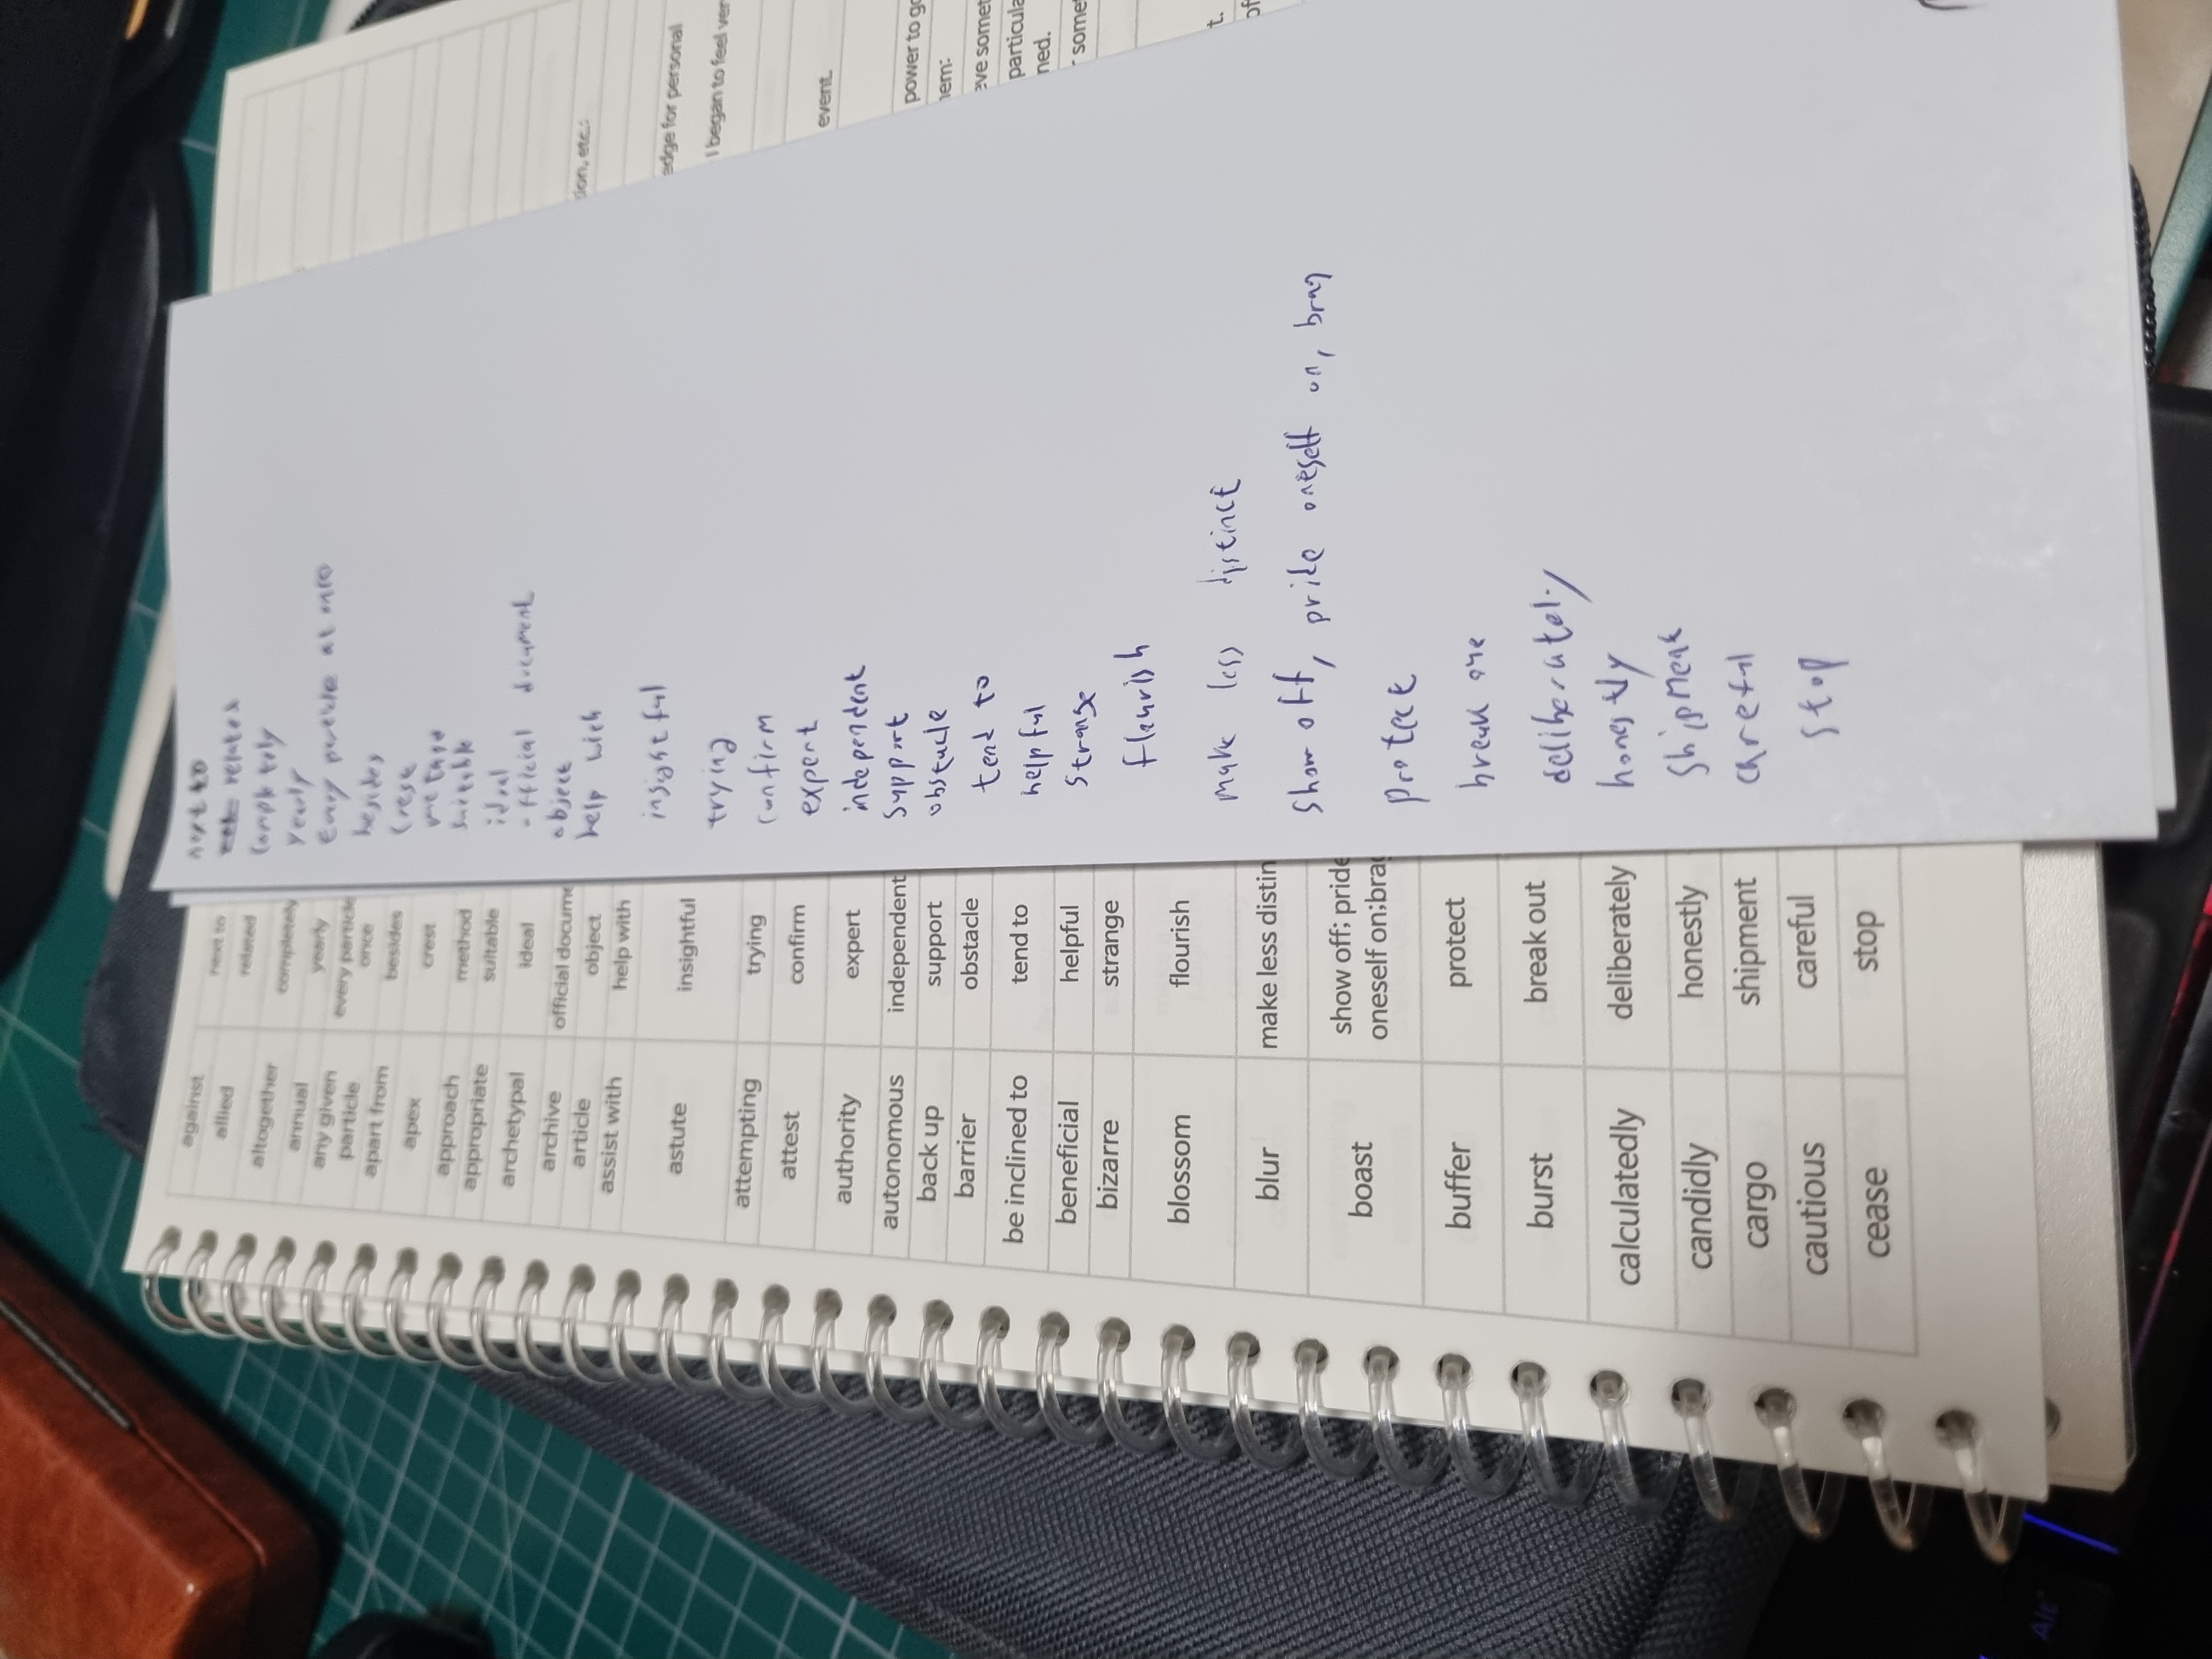 against next to
allied related
altogether completely
annual yearly
any given every particle
particle once
apart from besides
apex crest
approach method
appropriate suitable
archetypal ideal
archive official docume
article object
assist with help with
astute insightful
attempting trying
attest confirm
authority expert
autonomous independent
back up support
barrier obstacle
be inclined to tend to
beneficial helpful
bizarre strange
blossom flourish
blur make less distin
boast show off; pride
oneself on;brag
buffer protect
burst break out
calculatedly deliberately
candidly honestly
cargo shipment
cautious careful
cease stop
next to
related
yearly
besides
crest
suitable
ideal
official document
object
help with
trying
confirm
expert
independent
support
obstacle
tend to
helpful
strange
flourish
make less distinct
show off, pride oneself on, brag
protect
break
honestly
stop
tion, etc.:
edge for personal
I began to feel ver
event.
power to go
hem:
eve somet
particula
ned.
somet
t.
of
Alt